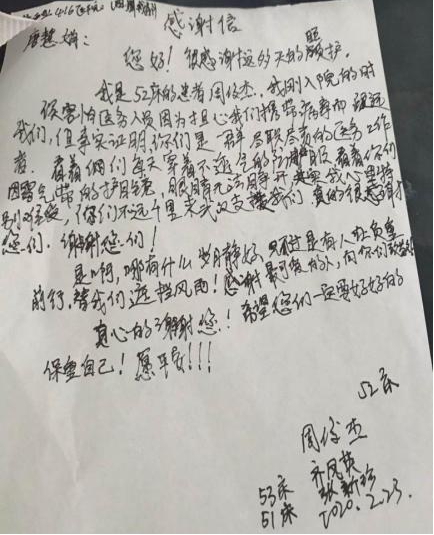 感谢信
唐慧娟：
您好！很感谢这多天的照护。
我是52床的患者周俊杰，我刚入院的时
候害怕医务人员因为担心我们携带病毒而疏远
我们，但事实证明你们是一群尽职尽责的医务工作
者。看着俩们每天穿着不透气的防护服，看着你们
因雾气带的护目镜，眼睛无法睁开，真心觉得
特别，你们不远千里来武汉支援我们，真的很感谢
您们。谢谢您们！
是啊，哪有什么岁月静好，只不过是有人在负重
前行，替我们遮挡风雨！感谢最可爱的人，向你们致敬
真心的谢谢您！希望您们一定要好好的
保重自己！愿平安！！！
52床
周俊杰
齐凤英
53床
51床
2020.2.23.